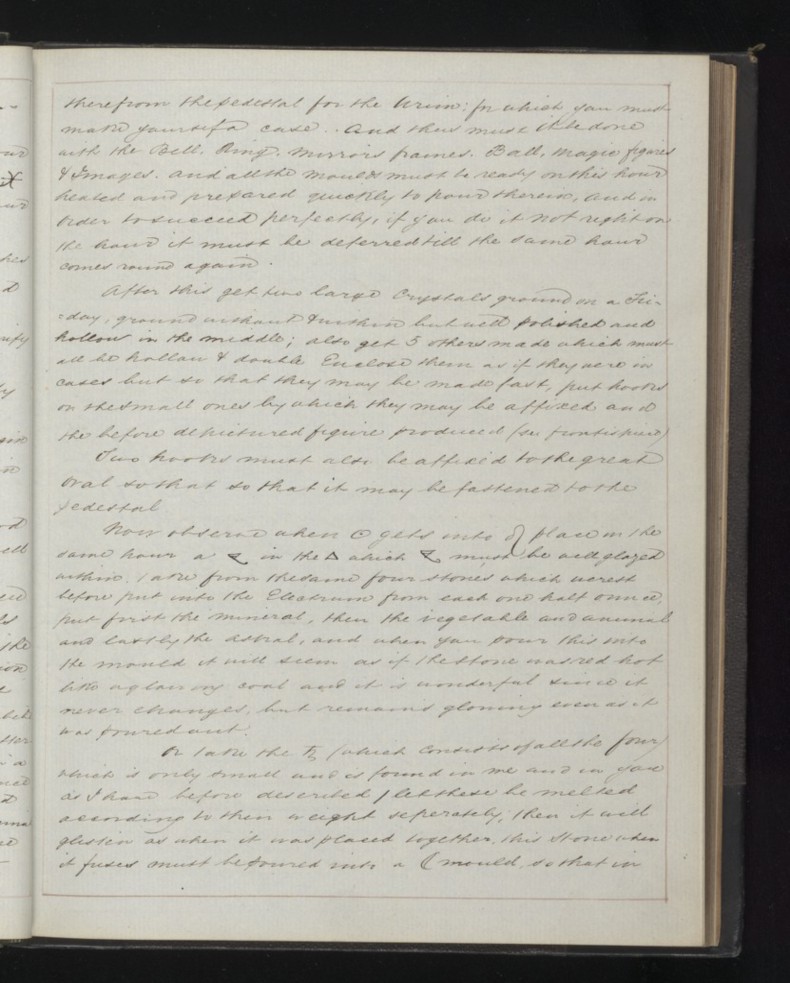 therefrom the pedestal for the Urim: for which you must
make yourself a case. And thus must it be done
with the Bell, Ring, mirrors frames, Ball, magic figures
& Images. and all the moulds must be ready on this hour
heated and prepared quickly to pour therein, and in
order to succeed perfectly, if you do it not right on
the hour it must be deferred till the same hour
comes round again.
After this get two large Crystals ground on a Fri-
=day, ground without & within but well polished and
hollow in the middle; also get 5 others made which must
all be hollow & double Enclose them as if they were in
cases but so that they may be made fast, put hooks
on the small ones by which they may be affixed and
the before depictured figure produced (see frontispiece)
Two hooks must also be affixed to the great
Oval so that so that it may be fastened to the
pedestal
Now observe when gets into place in the
same hour a in the △ which must be well glazed
within, take from the same four stones which were
before put into the Electrum from each one half ounce,
put first the mineral, then the vegetable and animal
and lastly the astral, and when you pour this into
the mould it will seem as if the stone was red hot
like a glowing coal and it is wonderful since it
never changes, but remains glowing even as it
was poured out.
Or take the ♄ (which consists of all the four)
which is only small and is found in me and in you
as I have before described / let these be melted
according to their weight seperately, then it will
glisten as when it was placed together, this Stone when
it fuses must be poured into a mould, so that in